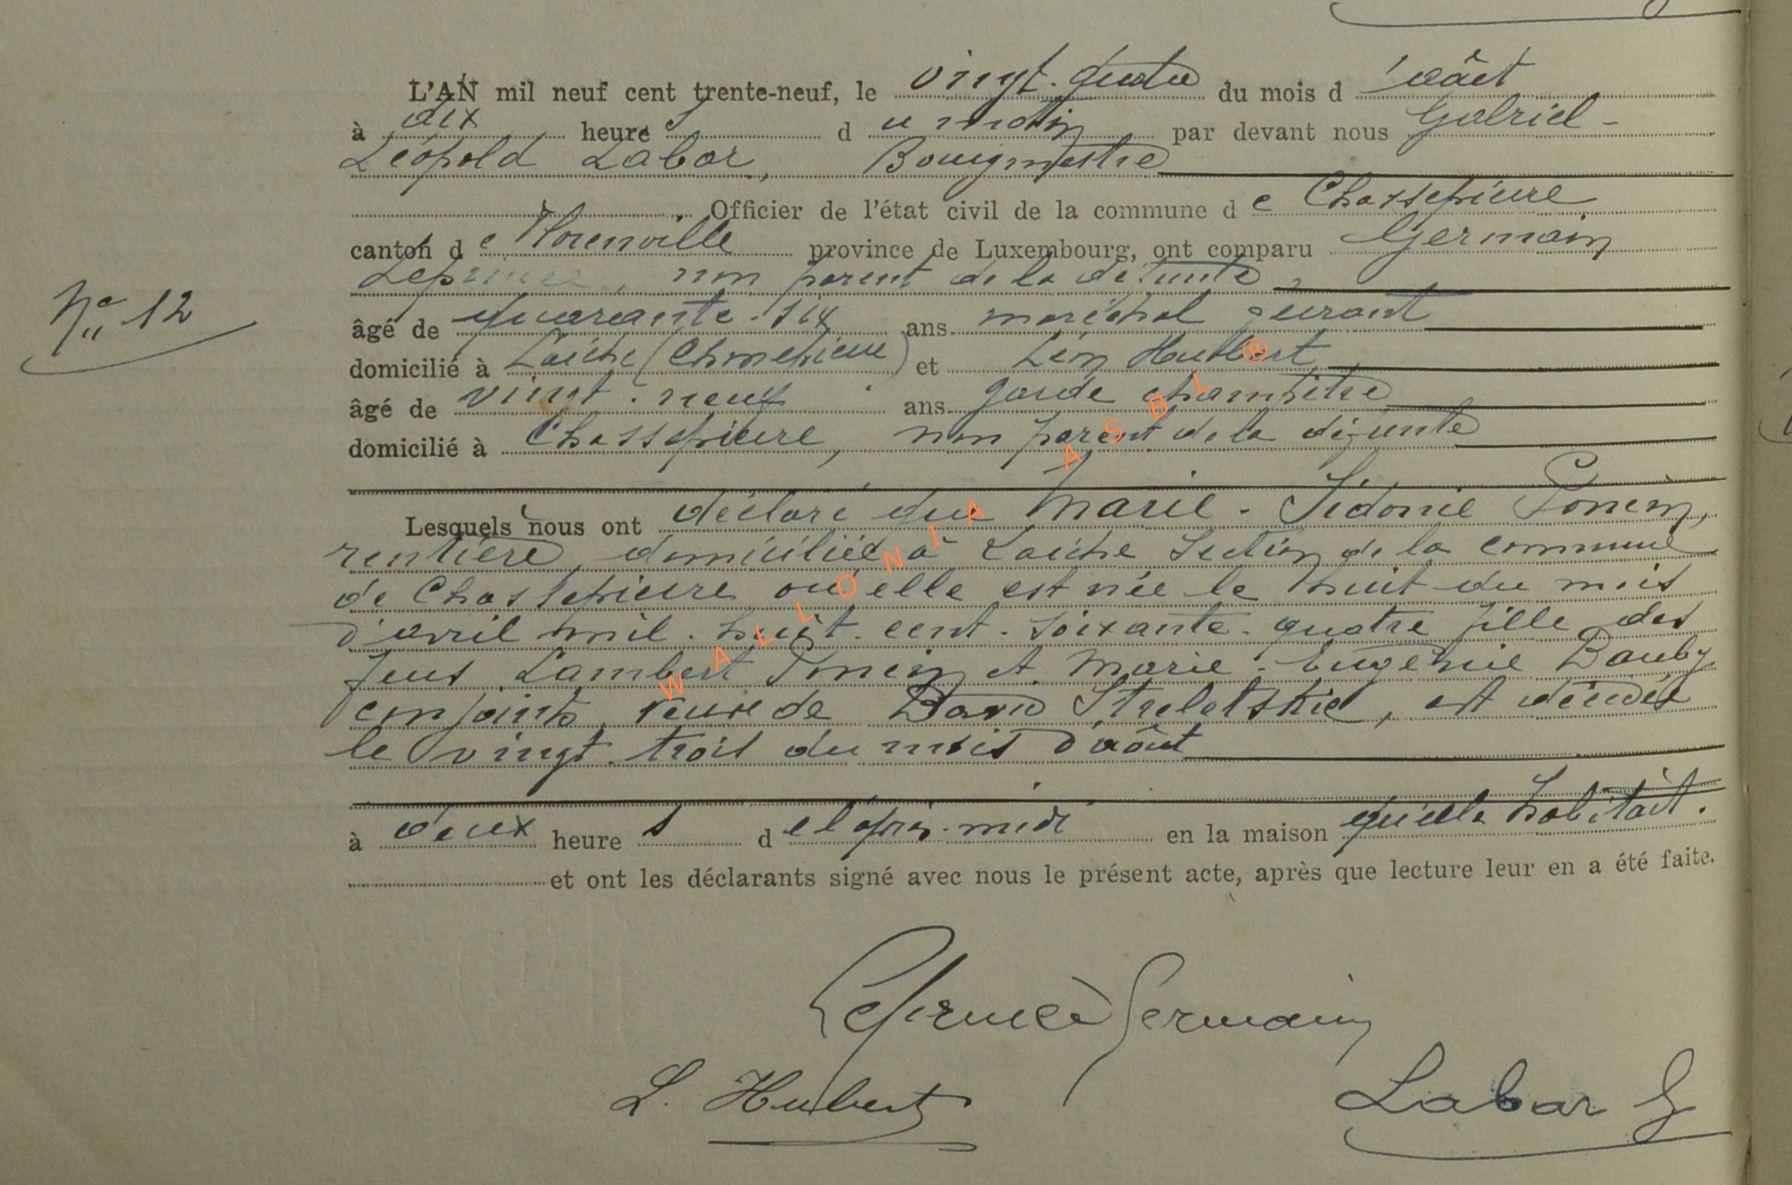 L'AN mil neuf cent trente-neuf, le vingt-quatre du mois d'août
à dix heures du matin par devant nous Gabriel-
Léopold Labar, Bourgmestre
Officier de l'état civil de la commune de Chassepierre
canton de Florenville province de Luxembourg, ont comparu Germain
Leprince, non parent de la défunte,
N° 12
âgé de quarante-six ans maréchal ferrant
domicilié à Laiche (Chassepierre) et Léon Hubert
âgé de vingt-neuf ans garde champêtre
domicilié à Chassepierre, non parent de la défunte
Lesquels nous ont déclaré que Marie-Sidonie Poncin,
rentière domiciliée à Laiche Section de la commune
de Chassepierre où elle est née le huit du mois
d'avril mil-huit-cent-soixante-quatre fille des
feus Lambert Poncin et Marie-Eugénie Bauby
conjoints, veuve de David Streletskie, est décédée
le vingt-trois du mois d'août
à deux heures de l'après-midi en la maison qu'elle habitait.
et ont les déclarants signé avec nous le présent acte, après que lecture leur en a été faite.
Leprince Germain
L. Hubert Labar G
WALLONIA ASBL ®